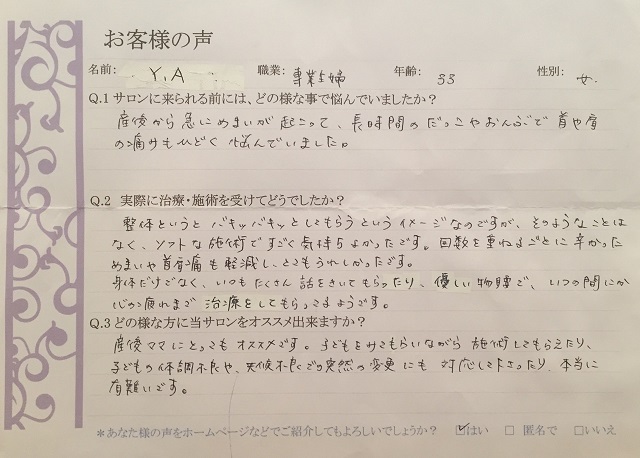 お客様の声
名前: Y.A 職業: 専業主婦 年齢: 33 性別: 女
Q.1 サロンに来られる前には、どの様な事で悩んでいましたか?
産後から急にめまいが起こって、長時間のだっこやおんぶで首や肩
の痛みもひどく悩んでいました。
Q.2 実際に治療・施術を受けてどうでしたか?
整体というとバキッバキッとしてもらうというイメージなのですが、そのようなことは
なく、ソフトな施術ですごく気持ちよかったです。回数を重ねるごとに辛かった
めまいや首肩痛も軽減し、とてもうれしかったです。
身体だけでなく、いつもたくさん話をきいてもらったり、優しい物腰で、いつの間にか
心の疲れまで治療をしてもらってるようです。
Q.3 どの様な方に当サロンをオススメ出来ますか?
産後ママにとってもオススメです。子どもをみてもらいながら施術してもらえたり、
子どもの体調不良や、天候不良での突然の変更にも対応して下さったり、本当に
有難いです。
*あなた様の声をホームページなどでご紹介してもよろしいでしょうか? ☑はい □ 匿名で □いいえ